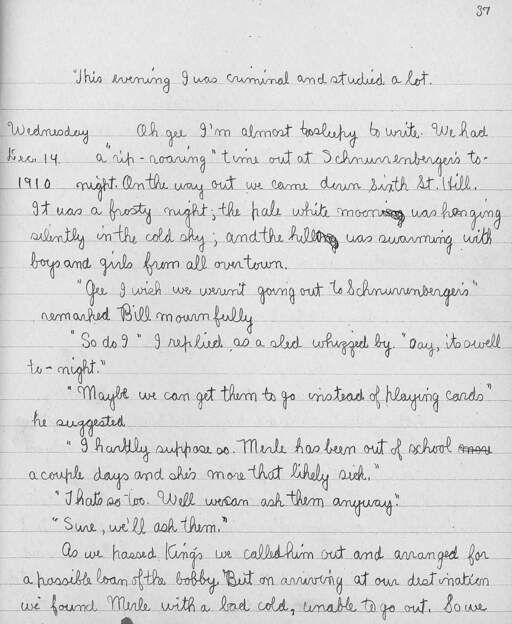 37
"This evening I was criminal and studied a lot.
Wednesday Oh gee I'm almost to sleepy to write. We had
Dec. 14 a "rip-roaring" time out at Schnurrenberger's to-
1910 night. On the way out we came down Sixth St. Hill.
It was a frosty night; the pale white moon was hanging
silently in the cold sky; and the hill was swarming with
boys and girls from all over town.
"Gee I wish we weren't going out to Schnurrenberger's"
remarked Bill mournfully
"So do I" I replied as a sled whizzed by. "Say, its swell
to-night."
"Maybe we can get them to go instead of playing cards"
he suggested
"I hardly suppose so. Merle has been out of school
a couple days and she's more that likely sick."
"Thats so too. Well we can ask them anyway."
"Sure, we'll ask them."
As we passed King's we called him out and arranged for
a possible loan of the bobby. But on arriving at our destination
we found Merle with a bad cold, unable to go out. So we